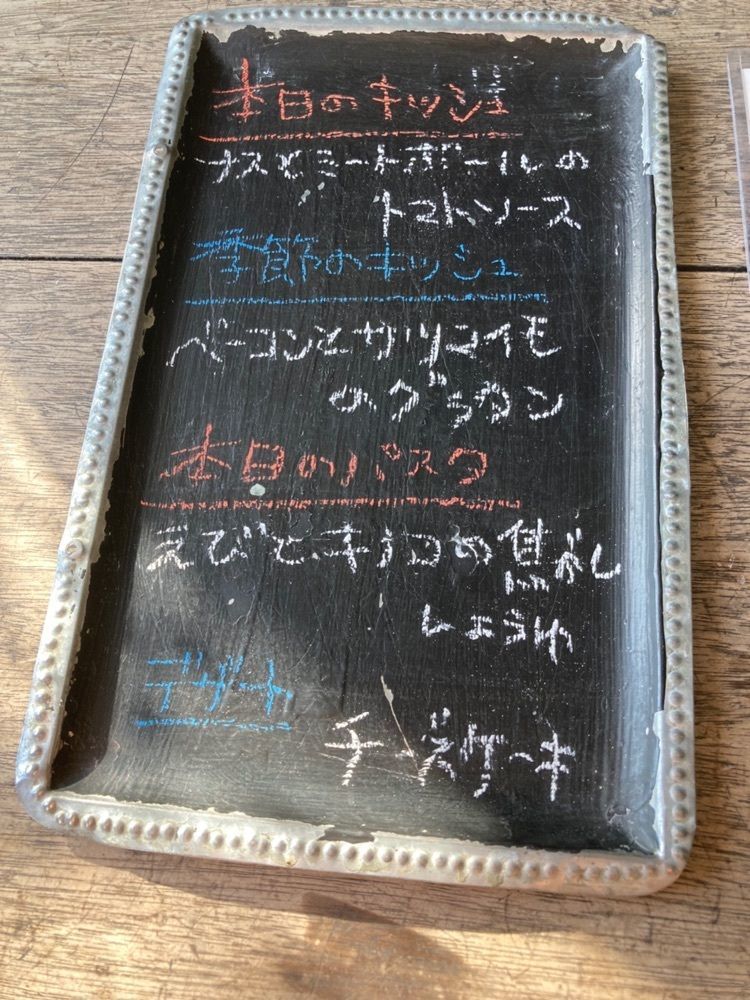 本日のキッシュ
ナスとミートボールの
トマトソース
季節のキッシュ
ベーコンとサツマイモ
のグラタン
本日のパスタ
えびとキノコの焦がし
しょうゆ
デザート
チーズケーキ